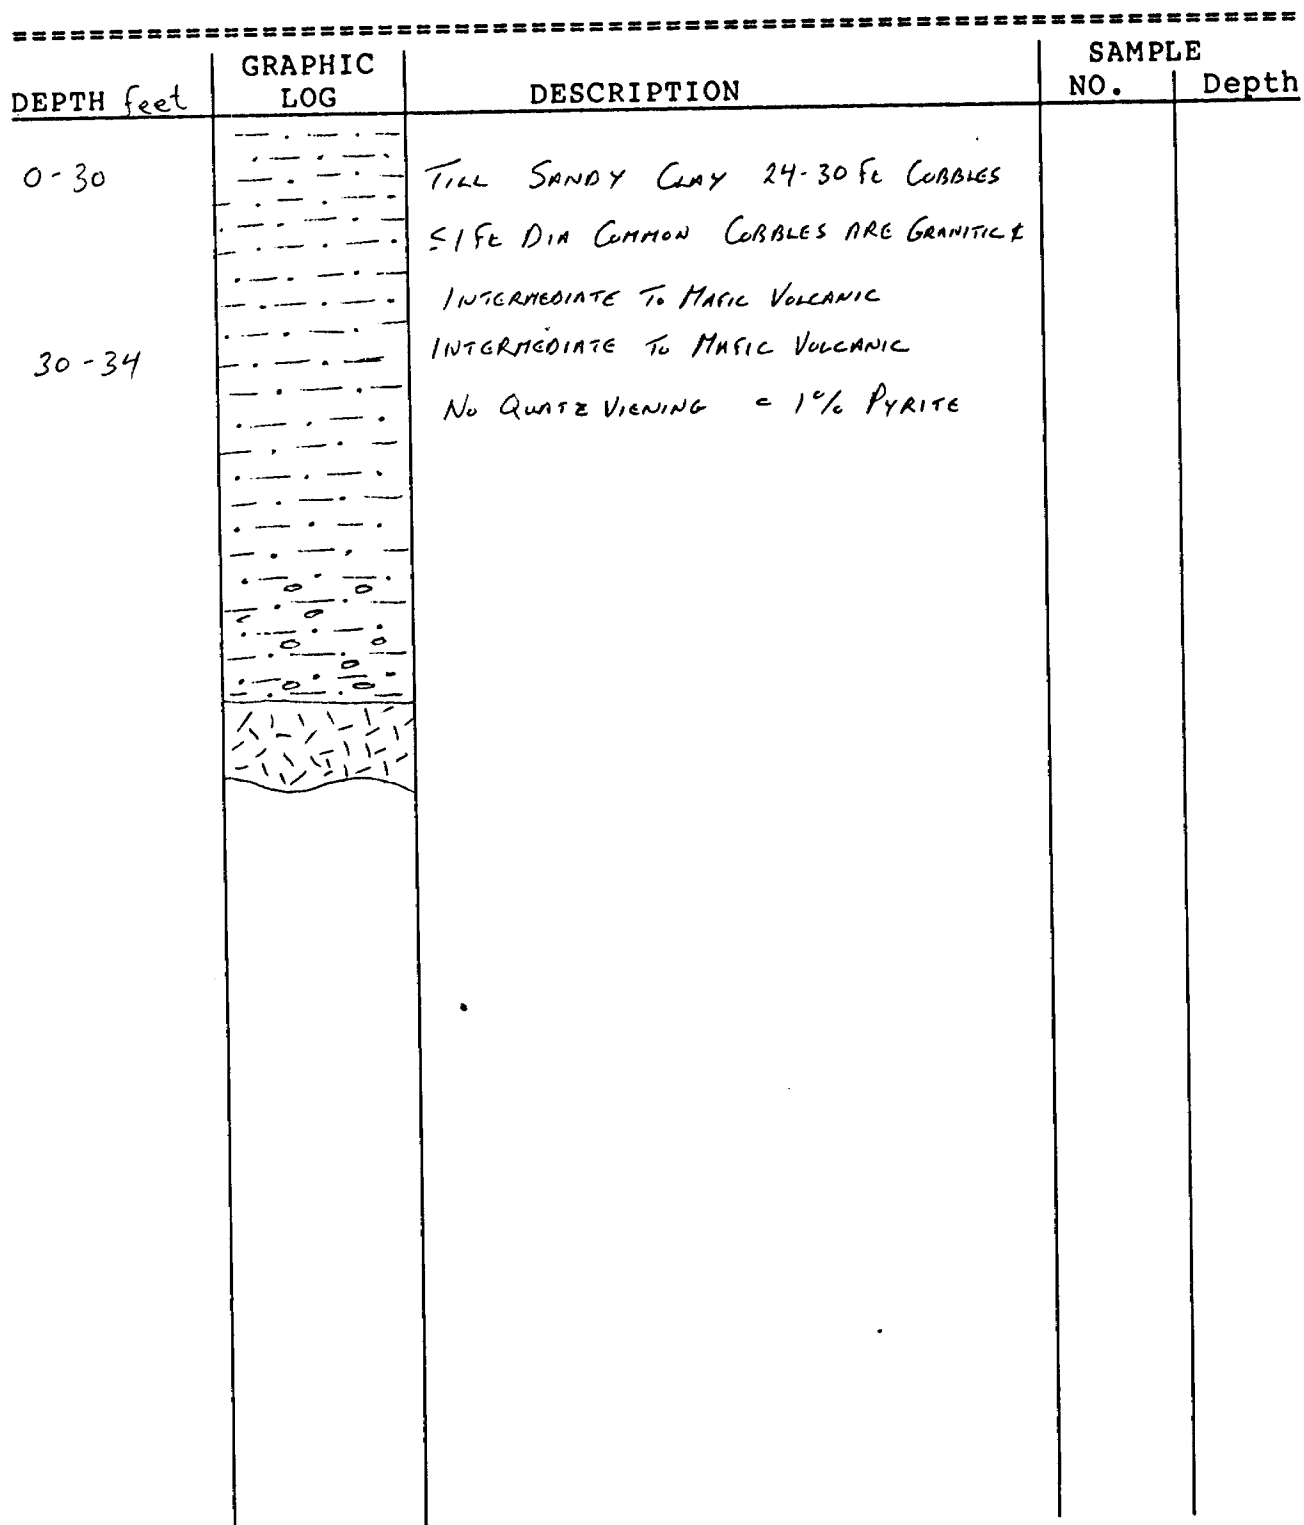 GRAPHIC SAMPLE
DEPTH feet LOG DESCRIPTION NO. Depth
0-30 TILL SANDY CLAY 24-30 Ft COBBLES
≤1 Ft DIA COMMON COBBLES ARE GRANITIC &
INTERMEDIATE TO MAFIC VOLCANIC
30-34 INTERMEDIATE TO MAFIC VOLCANIC
NO QUATZ VIENING 1% PYRITE